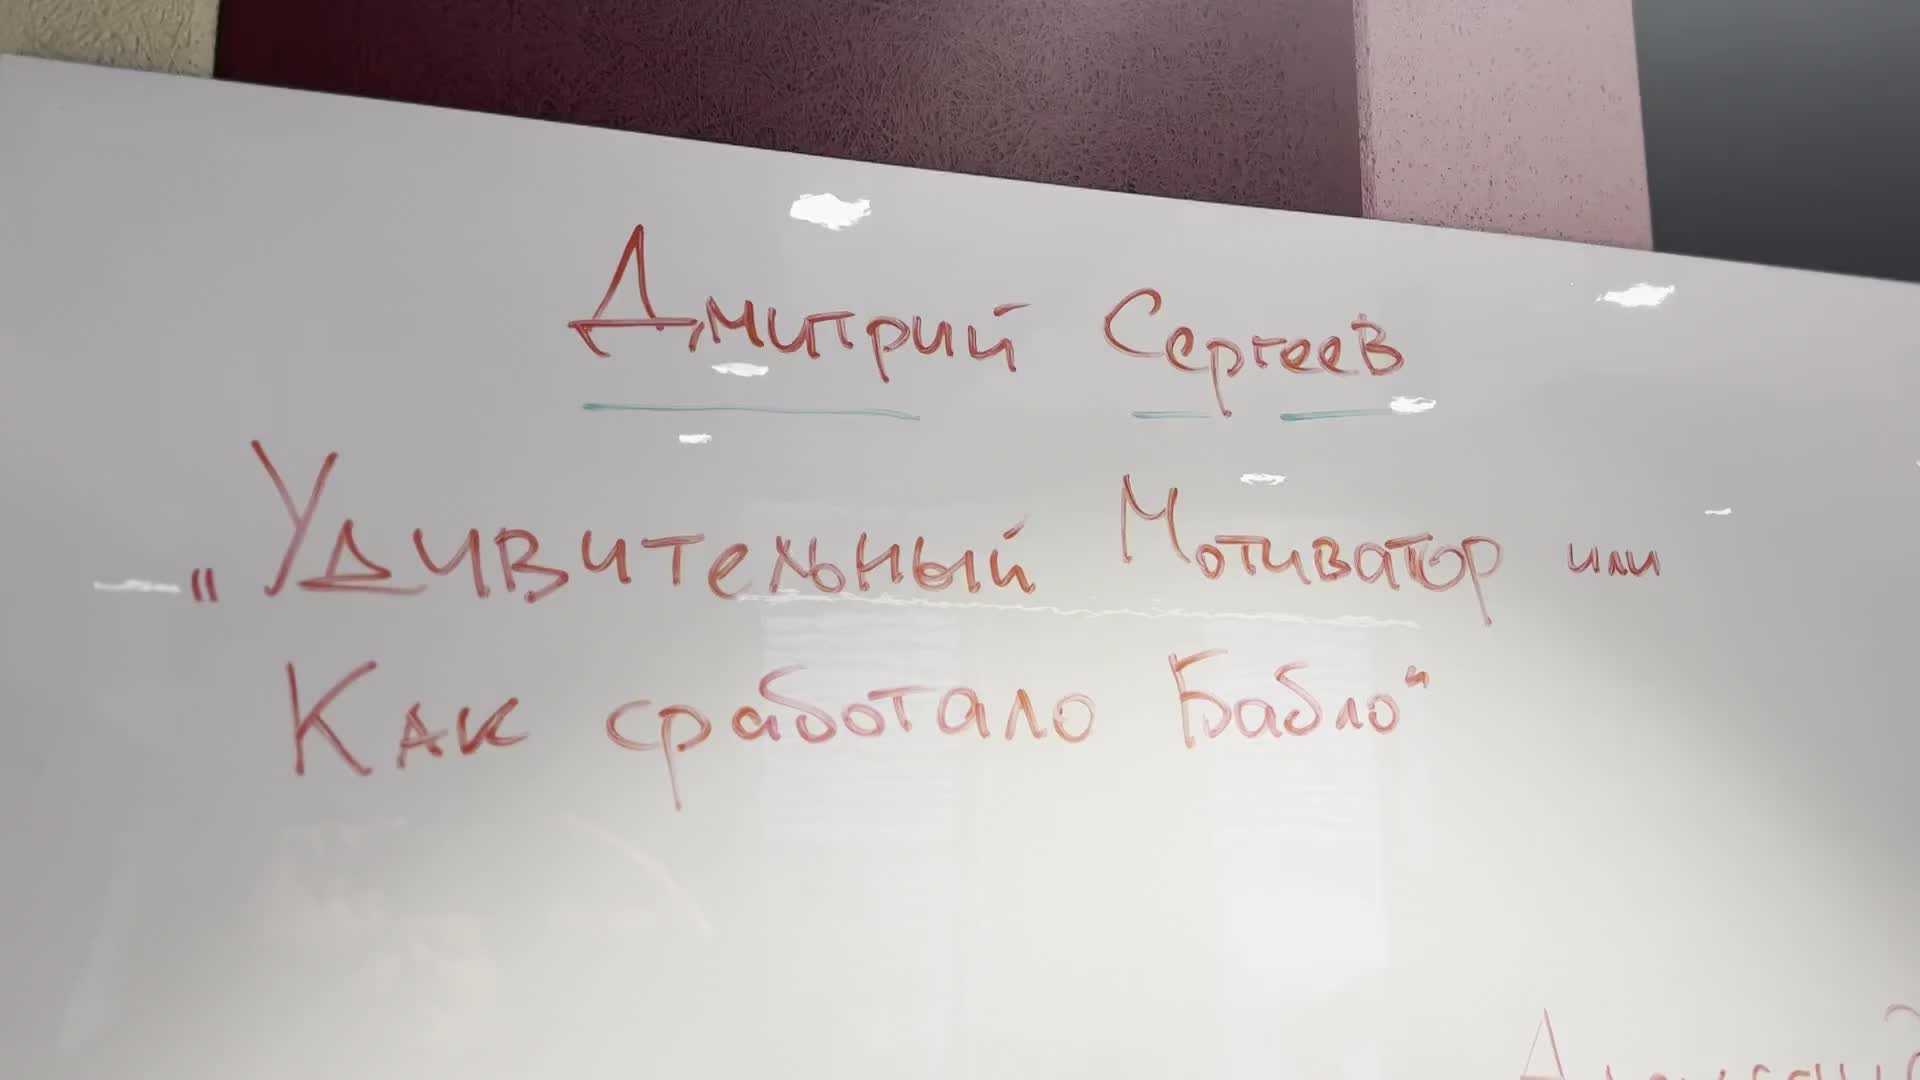 Дмитрий Сергеев
„Удивительный Мотиватор или
Как сработало Бабло“